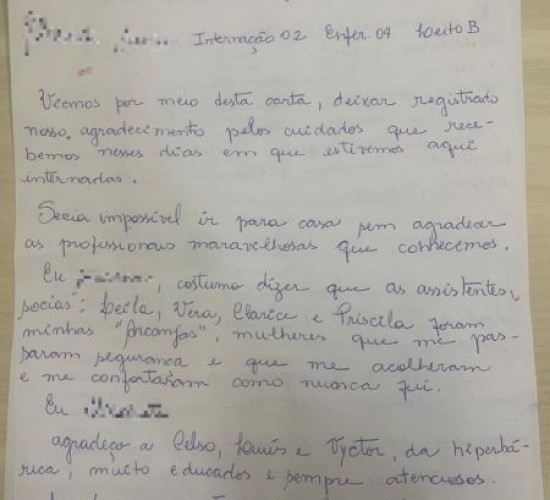 Internação 02 Enfer. 04 Leito B
Viemos por meio desta carta, deixar registrado
nosso agradecimento pelos cuidados que rece-
bemos nesses dias em que estivemos aqui
internadas.
Seria impossível ir para casa sem agradecer
as profissionais maravilhosas que conhecemos.
Eu , costumo dizer que as assistentes
socias": Lecla, Vera, Clarice e Priscila foram
minhas "Arcanjas", mulheres que me pas-
saram segurança e que me acolheram
e me confortaram como nunca fui.
Eu
agradeço a Celso, Louis e Vyctor, da hiperbá-
rica, muito educados e sempre atenciosos.